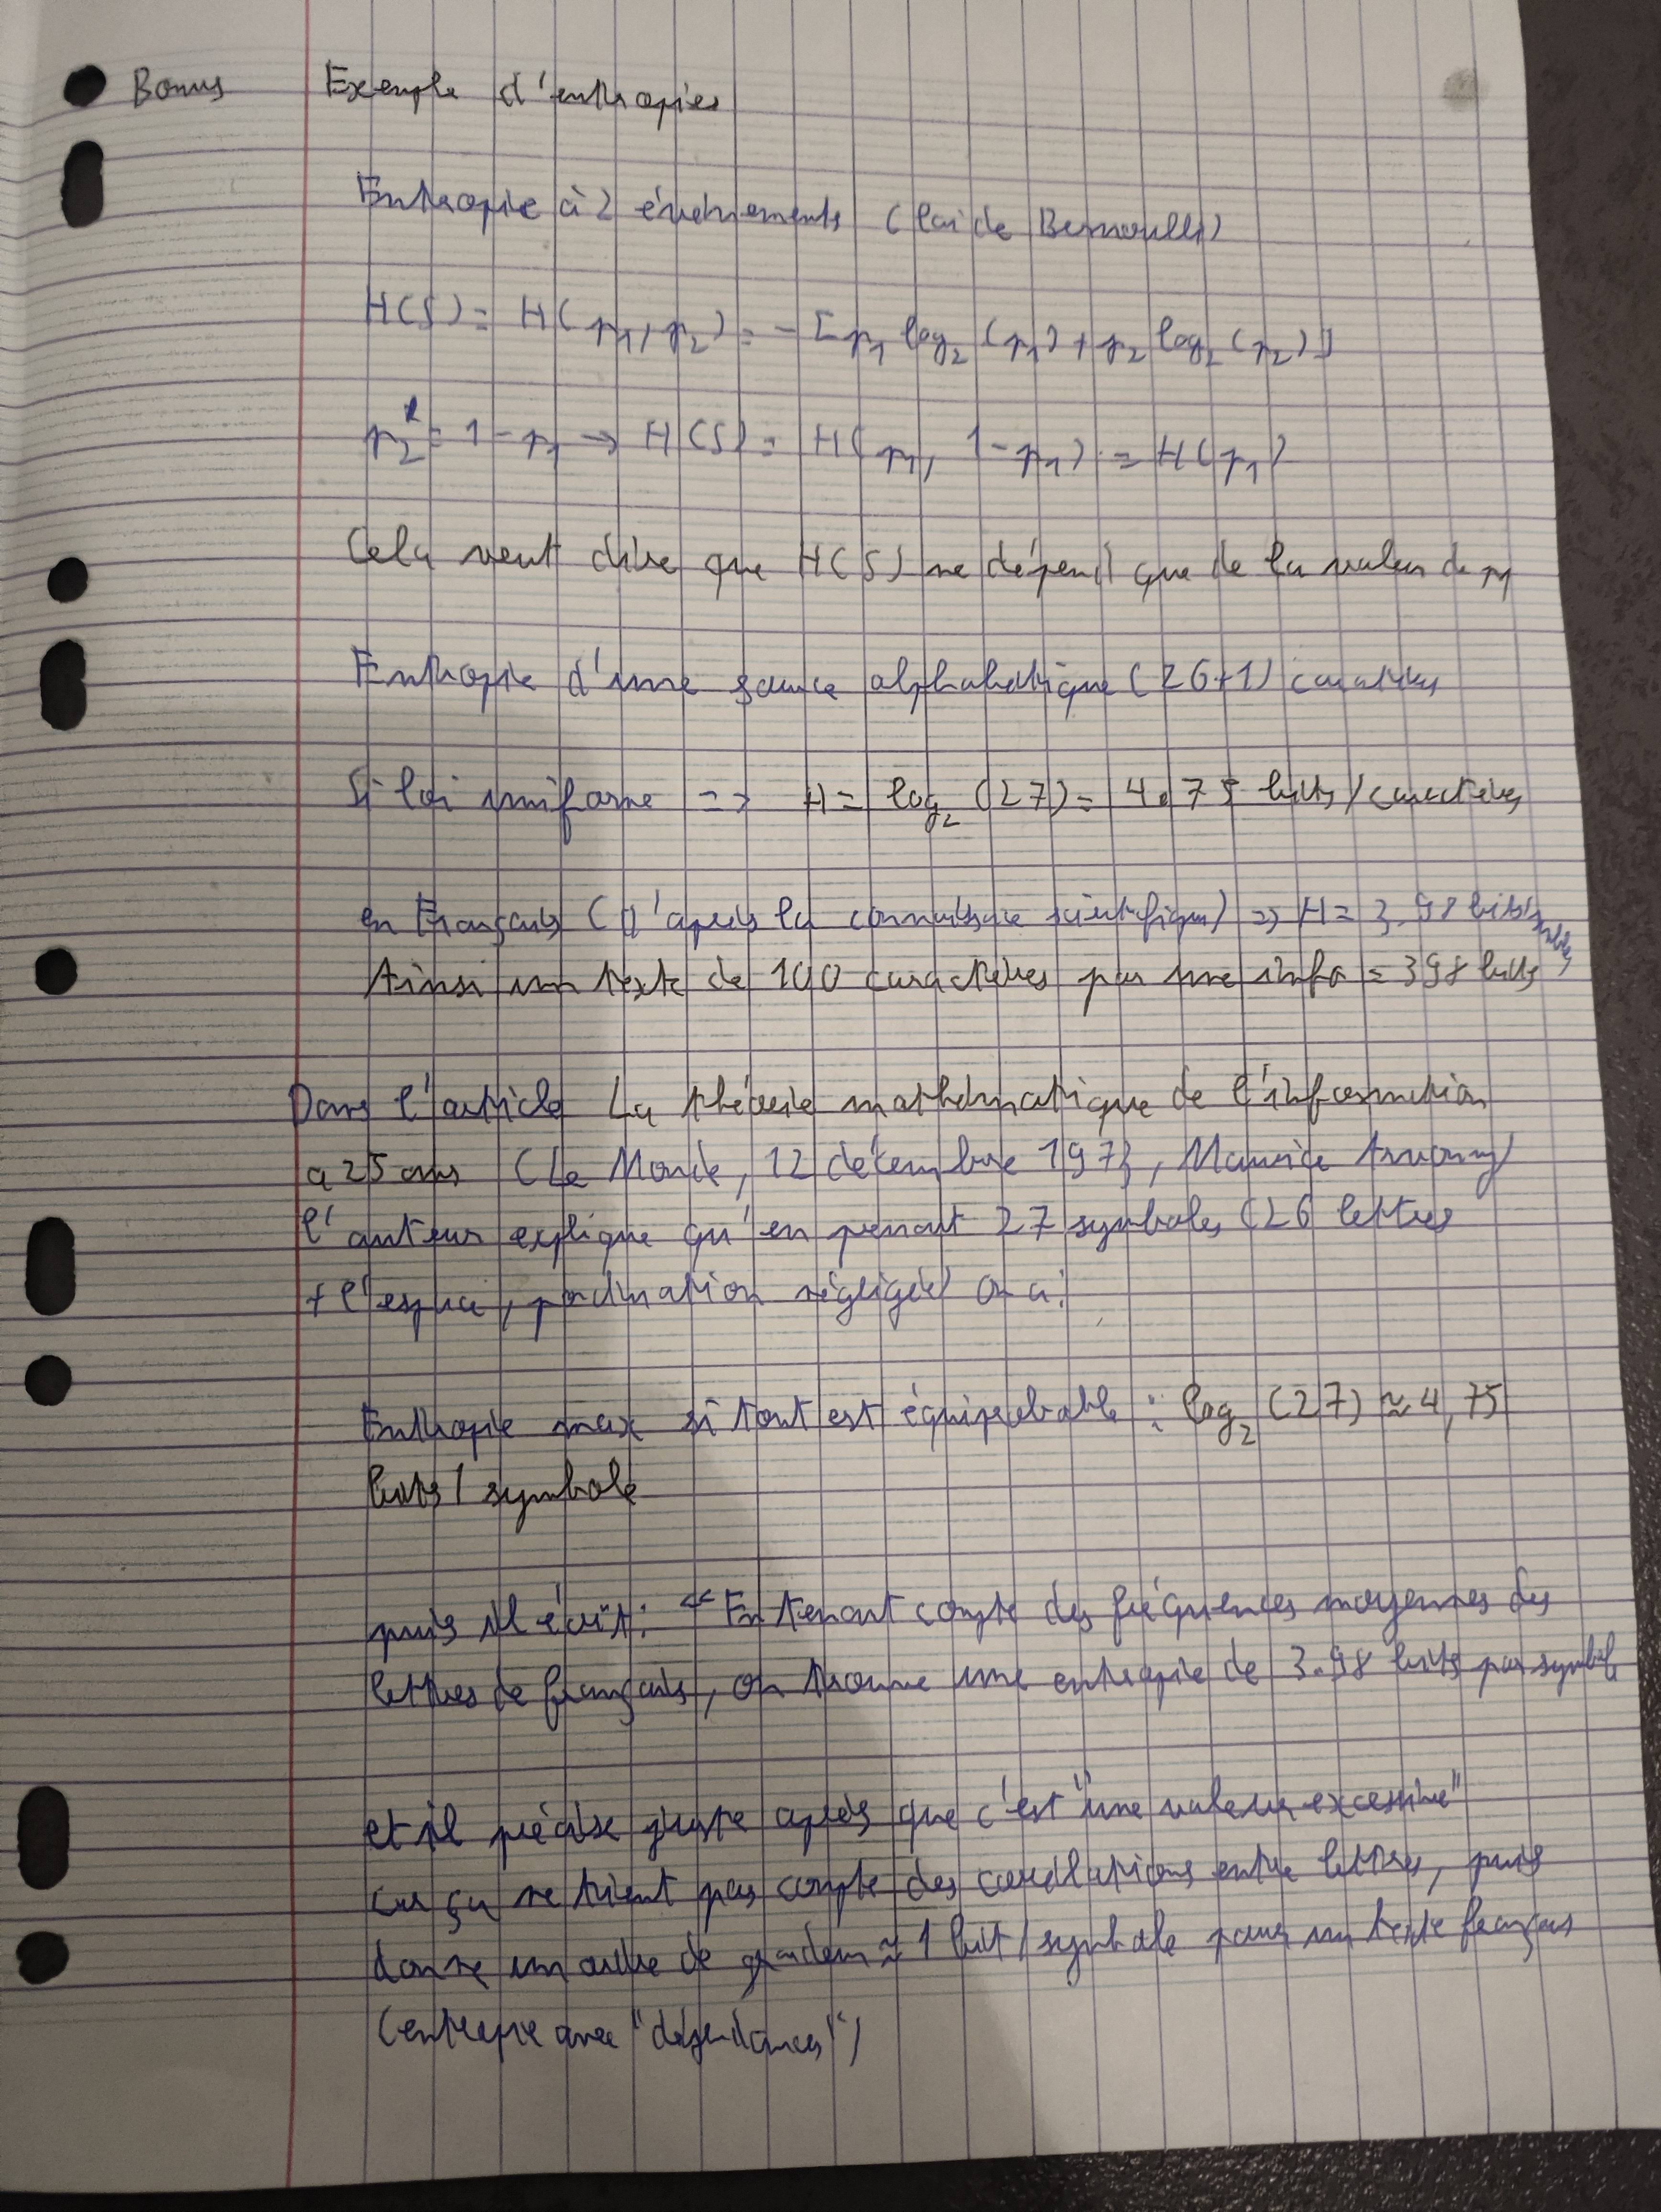 Bonus Exemple d'enthropies
Enthropie à 2 événements (loi de Bernoulli)
H(S) = H(p₁, p₂) = - [p₁ log₂ (p₁) + p₂ log₂ (p₂)]
p₂ = 1 - p₁ → H(S) = H(p₁, 1 - p₁) = H(p₁)
Cela veut dire que H(S) ne dépend que de la valeur de p₁
Enthropie d'une source alphabétique (26+1) caractères
Si loi uniforme => H = log₂ (27) = 4.75 bits / caractères
en Français (d'après la connaissance scientifique) => H = 3.98 bits
Ainsi un texte de 100 caractères par une info = 398 bits
Dans l'article La théorie mathématique de l'information
a 25 ans (Le Monde, 12 décembre 1973, Maurice
l'auteur explique qu'en prenant 27 symboles (26 lettres
+ l'espace, ponctuation négligée) on a :
Enthropie max si tout est équiprobable : log₂ (27) ≈ 4,75
bits / symbole
puis il écrit : "En tenant compte des fréquences moyennes des
lettres de français, on trouve une entropie de 3.98 bits par symbole
et il précise juste après que c'est "une valeur excessive"
car ça ne tient pas compte des corrélations entre lettres, puis
donne un ordre de grandeur ≈ 1 bit / symbole pour un texte français
(entropie avec "dépendances")